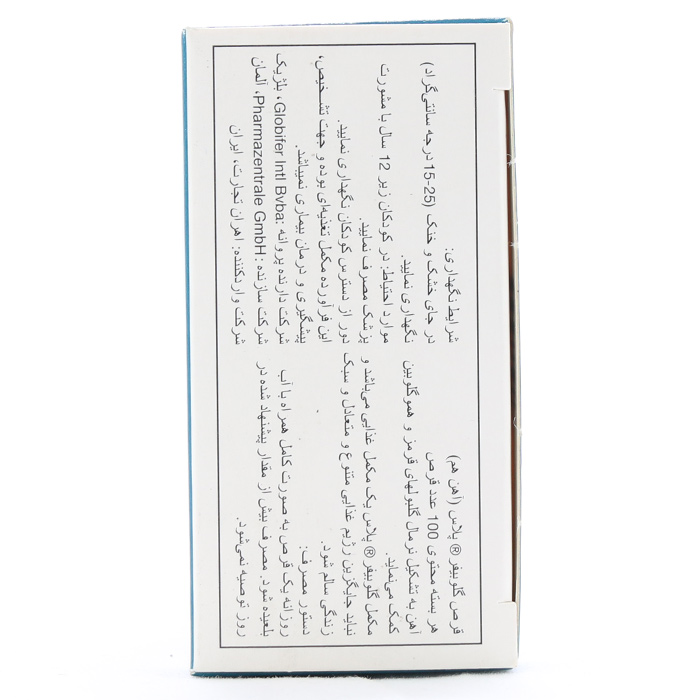 قرص گلوبیفر® پلاس (آهن هم)
هر بسته محتوی 100 عدد قرص
آهن به تشکیل نرمال گلبولهای قرمز و هموگلوبین
کمک می‌نماید.
مکمل گلوبیفر® پلاس یک مکمل غذایی می‌باشد و
نباید جایگزین رژیم غذایی متنوع و متعادل و سبک
زندگی سالم شود.
دستور مصرف:
روزانه یک قرص به صورت کامل همراه با آب
بلعیده شود. مصرف بیش از مقدار پیشنهاد شده در
روز توصیه نمی‌شود.
شرایط نگهداری:
در جای خشک و خنک (25-15 درجه سانتی‌گراد)
نگهداری نمایید.
موارد احتیاط: در کودکان زیر 12 سال با مشورت
پزشک مصرف نمایید.
دور از دسترس کودکان نگهداری نمایید.
این فرآورده مکمل تغذیه‌ای بوده و جهت تشخیص،
پیشگیری و درمان بیماری نمیباشد.
شرکت دارنده پروانه :Globifer Intl Bvba، بلژیک
شرکت سازنده :Pharmazentrale GmbH، آلمان
شرکت واردکننده: اهران تجارت، ایران